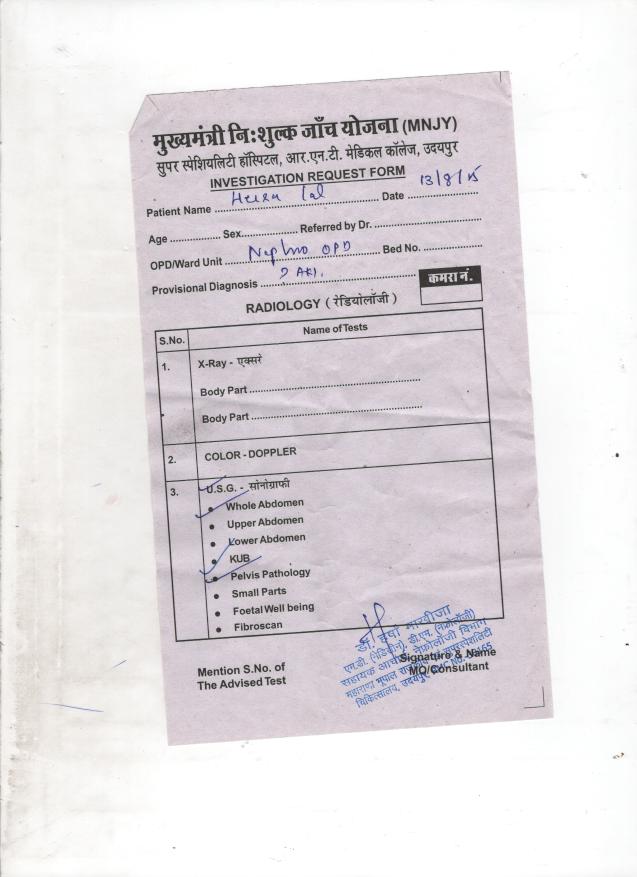 मुख्यमंत्री निःशुल्क जाँच योजना (MNJY)
सुपर स्पेशियलिटी हॉस्पिटल, आर.एन.टी. मेडिकल कॉलेज, उदयपुर
INVESTIGATION REQUEST FORM
Patient Name Heera Lal Date 13/8/25
Age Sex Referred by Dr.
OPD/Ward Unit Nephro OPD Bed No.
Provisional Diagnosis ? AKI.
कमरा नं.
RADIOLOGY ( रेडियोलॉजी )
S.No. Name of Tests
1. X-Ray - एक्सरे
Body Part
Body Part
2. COLOR - DOPPLER
3. U.S.G. - सोनोग्राफी
• Whole Abdomen
• Upper Abdomen
• Lower Abdomen
• KUB
• Pelvis Pathology
• Small Parts
• Foetal Well being
• Fibroscan
Mention S.No. of
The Advised Test
डॉ.
एम.डी. (मेडिसीन), डी.एम. (नेफ्रोलॉजी)
सहायक आचार्य, नेफ्रोलॉजी विभाग
महाराणा भूपाल
चिकित्सालय, उदयपुर
Signature & Name
MO/Consultant